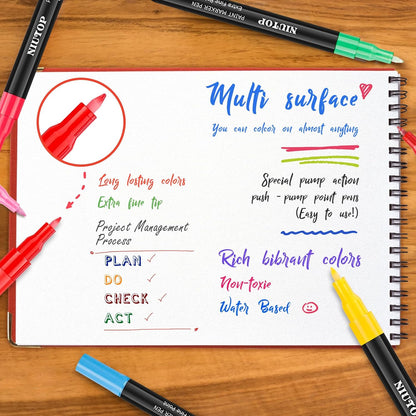 NIUTOP
NIUTOP
PAINT MARKER PEN
Extra Fine Point
Multi surface
You can color on almost anyting
Long losting colors
Extra fine tip
Project Management
Process
PLAN
DO
CHECK
ACT
Special pump action
push - pump point pens
(Easy to use!)
Rich bibrant colors
Non-toxic
Water Based
NIUTOP
NIUTOP
Extra Fine Point